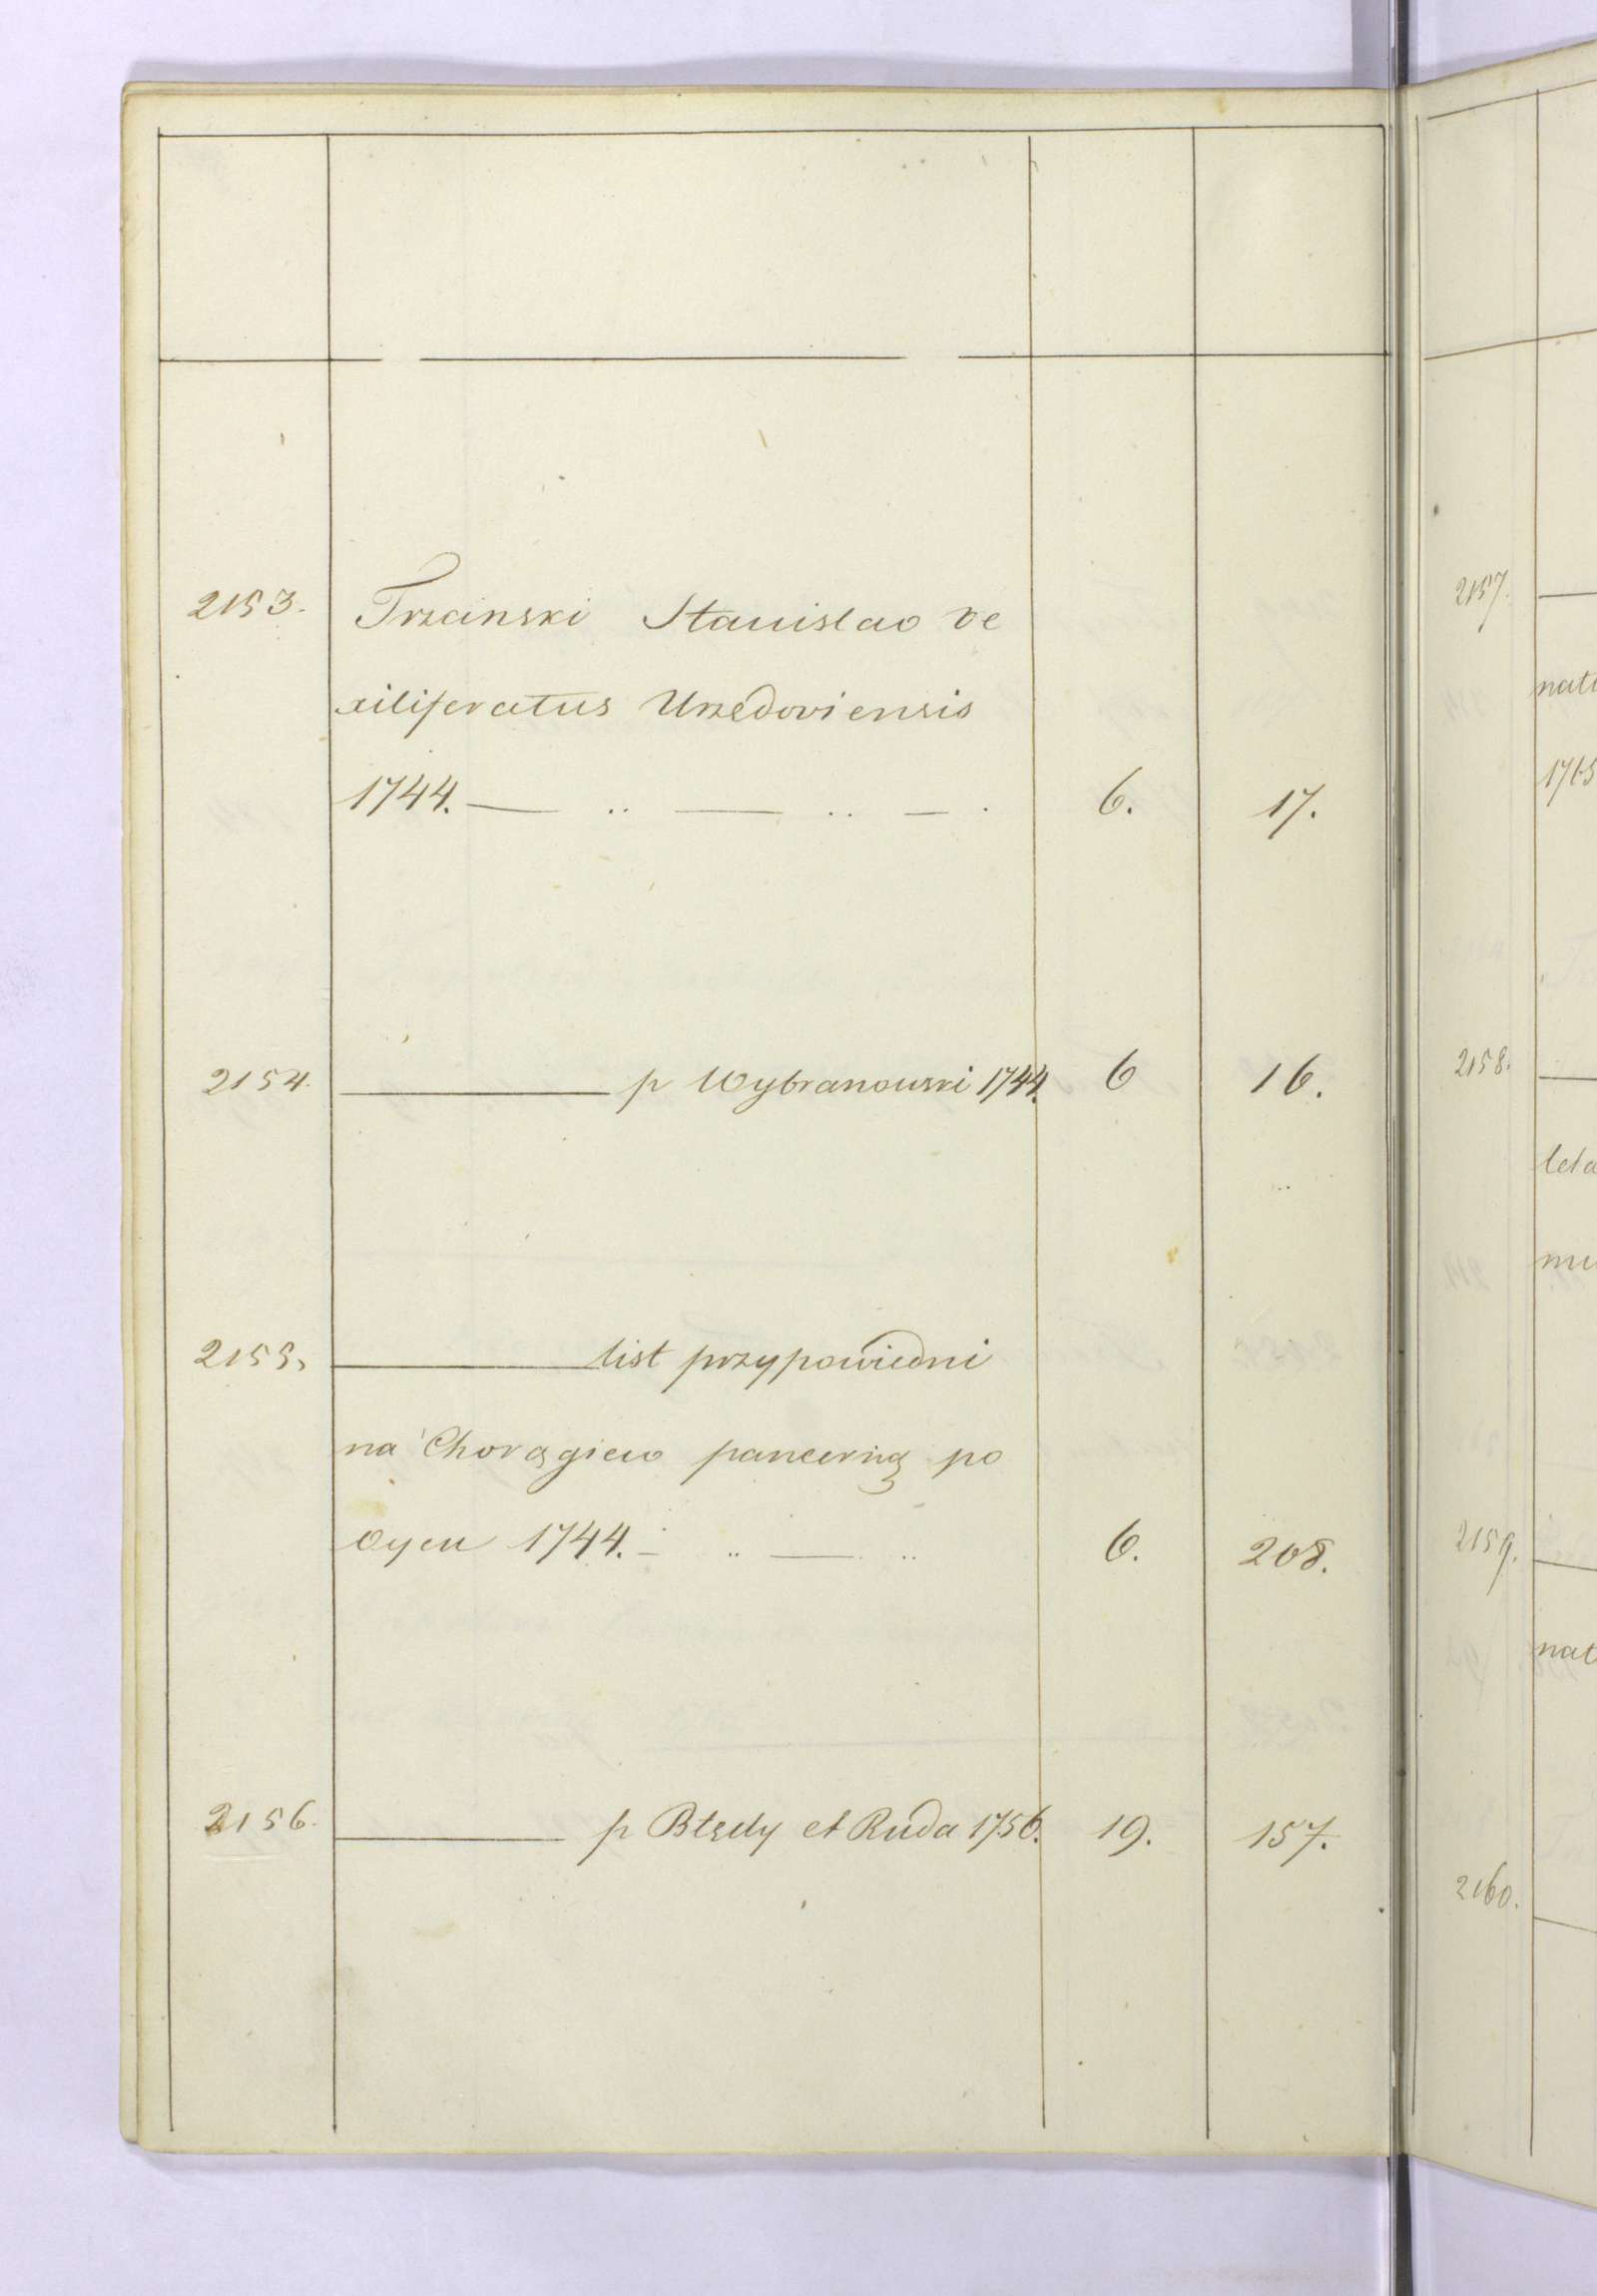 2153. Trzcinski Stanislao ve
xiliferatus Urzedoviensis
1744. — .. — .. — . 6. 17.
2154. — p Wybranowski 1744. 6 16.
2155. — list przypowiedni
na Chorągiew pancerną po
Oycu 1744. — .. — .. 6. 208.
2156. — p Błędy et Ruda 1756. 19. 157.
2157. —
nat
1765
2158. —
2159. —
nat
2160. —